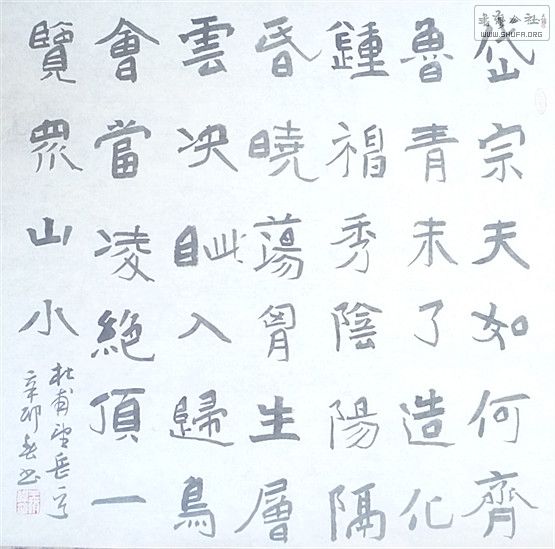 岱宗夫如何齊
魯青未了造化
鍾神秀陰陽隔
昏曉蕩胷生層
雲决眦入歸鳥
會當凌絶頂一
覽眾山小
杜甫望岳
辛卯春书
WWW.SHUFA.ORG